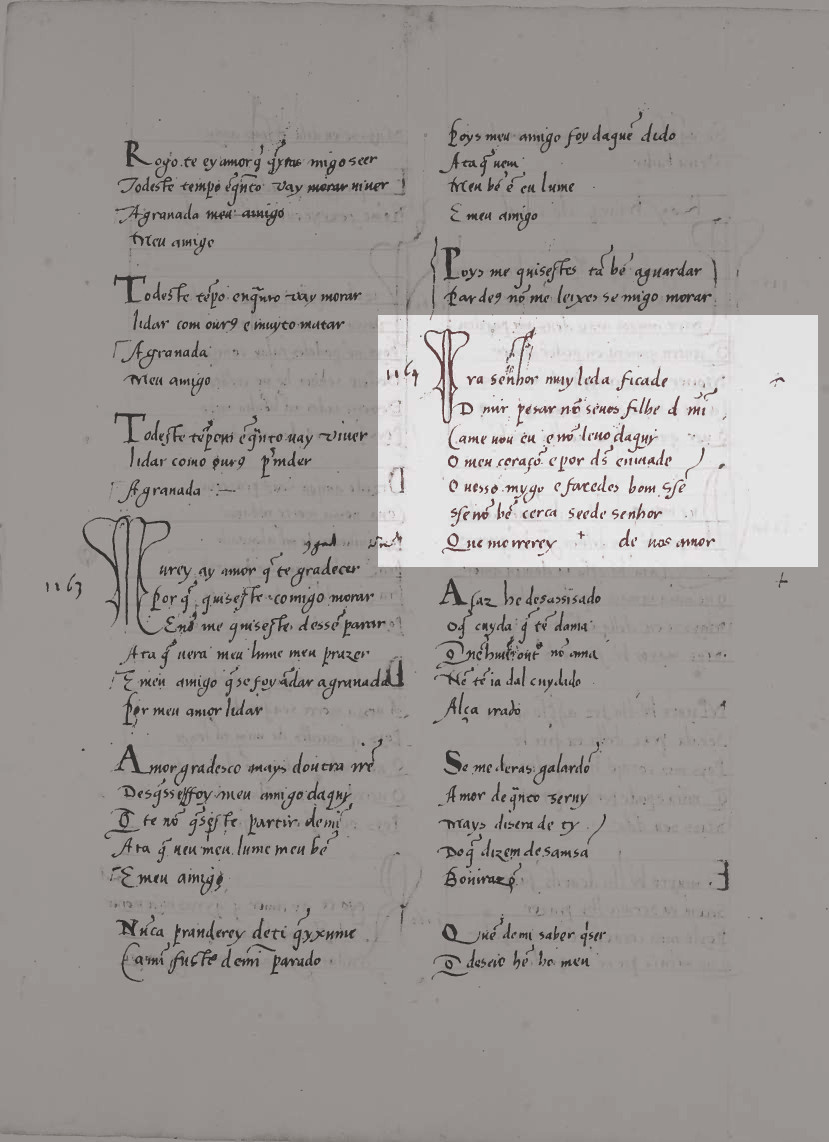 Rogo te ey amor q̄ q̄yras migo seer
Todeste tempo eq̄nto vay morar viver
Agranada meu amigo
Meu amigo
Todeste tēpo enq̄nto vay morar
lidar com ourꝯ e muyto matar
Agranada
Meu amigo
Todeste tēpem eq̄nto vay viver
lidar como ourꝯ prmder
Agranada
1163
urey ay amor q̄ te gradecer
Por q̄ quiseste comigo morar
E nō me quiseste desse partir
Ata q̄ vera meu lume meu prazer
E meu amigo q̄ se foy ādar agranada
Por meu amor lidar
Amor gradesco mays doutra rrē
Desq̄ssessoy meu amigo daquj
te nō q̄seste partir demi
Ata q̄ ueu meu lume meu bē
E meu amigo
Nūca pranderey deti q̄yxume
Camī fuste demī parado
Poys meu amigo foy daquē dido
Ata q̄ uem
Meu bē ē eu lume
E meu amigo
Poys me quisestes tā bē aguardar
Par deꝯ nō me leixes se migo morar
1164
ra senhor muy leda ficade
D mir pesar nō senos filhe d mī
Came uou eu e nō leuo daquj
O meu coraçō e por ds̄ enuiade
O uesso mygo e faredes bom ssē
sse nō bē cerca seede senhor
Que morrerey + de uos amor
Assaz he desassisado
oq̄ cuyda q̄ tē dama
nō ama
Nē tē ia dal cuydido
Alça irado
Se me deras galardō
Amor de q̄nto seruy
Mays disera de ty
Doq̄ dizem de samsā
Quē demi saber q̄ser
O deseio he ho meu